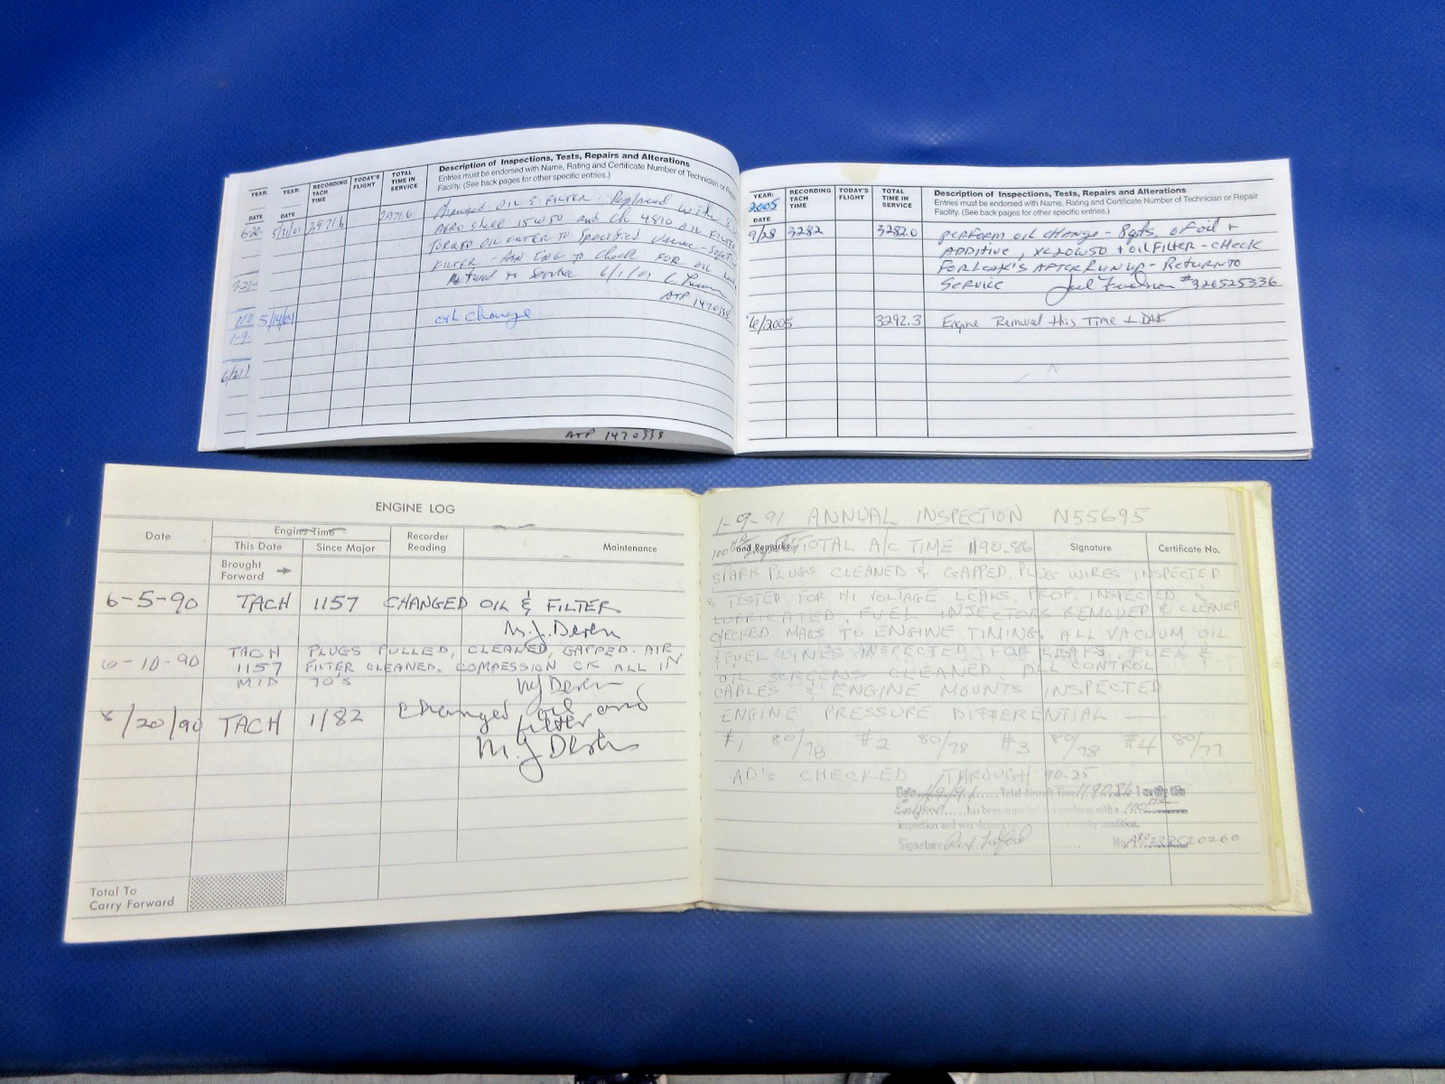 YEAR: YEAR: RECORDING TACH TIME TODAY'S FLIGHT TOTAL TIME IN SERVICE
Description of Inspections, Tests, Repairs and Alterations
Entries must be endorsed with Name, Rating and Certificate Number of Technician or
Facility. (See back pages for other specific entries.)
DATE DATE
6-20 5/31/01 2971.6 2971.6 OIL & FILTER - Replaced with
AERO Shell 15W50 and Ch 4810 OIL FILTER
TORQUED OIL FILTER TO Specified Value -
FILTER - RAN ENG to Check FOR OIL
Return to Service 6/1/01
ATP 1470338
5/14/04 OIL Change
1-9-
6/21/
ATP 1470338
YEAR: 2005 RECORDING TACH TIME TODAY'S FLIGHT TOTAL TIME IN SERVICE
Description of Inspections, Tests, Repairs and Alterations
Entries must be endorsed with Name, Rating and Certificate Number of Technician or Repair
Facility. (See back pages for other specific entries.)
DATE
9/28 3282 3282.0 PERFORM OIL CHANGE - 8qts, of oil +
ADDITIVE, XC20W50 + OIL FILTER - CHECK
FOR LEAK'S AFTER RUN UP - RETURN TO
SERVICE #326525336
6/2005 3292.3 Engine Removed this Time +
ENGINE LOG
Date Engine Time Recorder Reading Maintenance
This Date Since Major
Brought Forward
6-5-90 TACH 1157 CHANGED OIL & FILTER
M.J. Deren
6-10-90 TACH 1157 PLUGS PULLED, CLEANED, GAPPED. AIR
FILTER CLEANED. COMPESSION CK ALL IN
MID 70'S
MJ Deren
8/20/90 TACH 1182 Changed oil and
filter
M.J Deren
Total To
Carry Forward
1-9-91 ANNUAL INSPECTION N55695
and Remarks TOTAL A/C TIME 1190.86 Signature Certificate No.
SPARK PLUGS CLEANED & GAPPED. PLUG WIRES INSPECTED
& TESTED FOR HI VOLTAGE LEAKS. PROP. INSPECTED &
LUBRICATED. FUEL INJECTORS REMOVED & CLEANED
CHECKED MAGS TO ENGINE TIMING. ALL VACUUM, OIL
& FUEL LINES INSPECTED FOR LEAKS. FUEL &
OIL SCREENS CLEANED. ALL CONTROL
CABLES & ENGINE MOUNTS INSPECTED
ENGINE PRESSURE DIFFERENTIAL —
#1 80/78 #2 80/78 #3 80/78 #4 80/77
AD's CHECKED THROUGH 90-25
Date 1/9/91 Total Aircraft Time 1190.86 I certify this
Engine has been inspected in accordance with a 100 HR
inspection and was
Signature